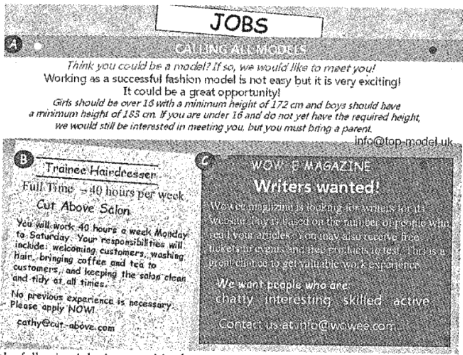 JOBS
A
CALLING ALL MODELS
Think you could be a model? If so, we would like to meet you!
Working as a successful fashion model is not easy but it is very exciting!
It could be a great opportunity!
Girls should be over 16 with a minimum height of 172 cm and boys should have
a minimum height of 183 cm. If you are under 16 and do not yet have the required height,
we would still be interested in meeting you, but you must bring a parent.
info@top-model.uk
B
Trainee Hairdresser
Full Time - 40 hours per week
Cut Above Salon
You will work 40 hours a week Monday
to Saturday. Your responsibilities will
include: welcoming customers, washing
hair, bringing coffee and tea to
customers, and keeping the salon clean
and tidy at all times.
No previous experience is necessary.
Please apply NOW!
cathy@cut-above.com
C
WOW E MAGAZINE
Writers wanted!
magazine is looking for writers for its
website. Pay is based on the number of people who
read your articles. You may also receive free
tickets to events and free products to test. This is a
great chance to get valuable work experience.
We want people who are:
chatty interesting skilled active
Contact us at info@wowee.com